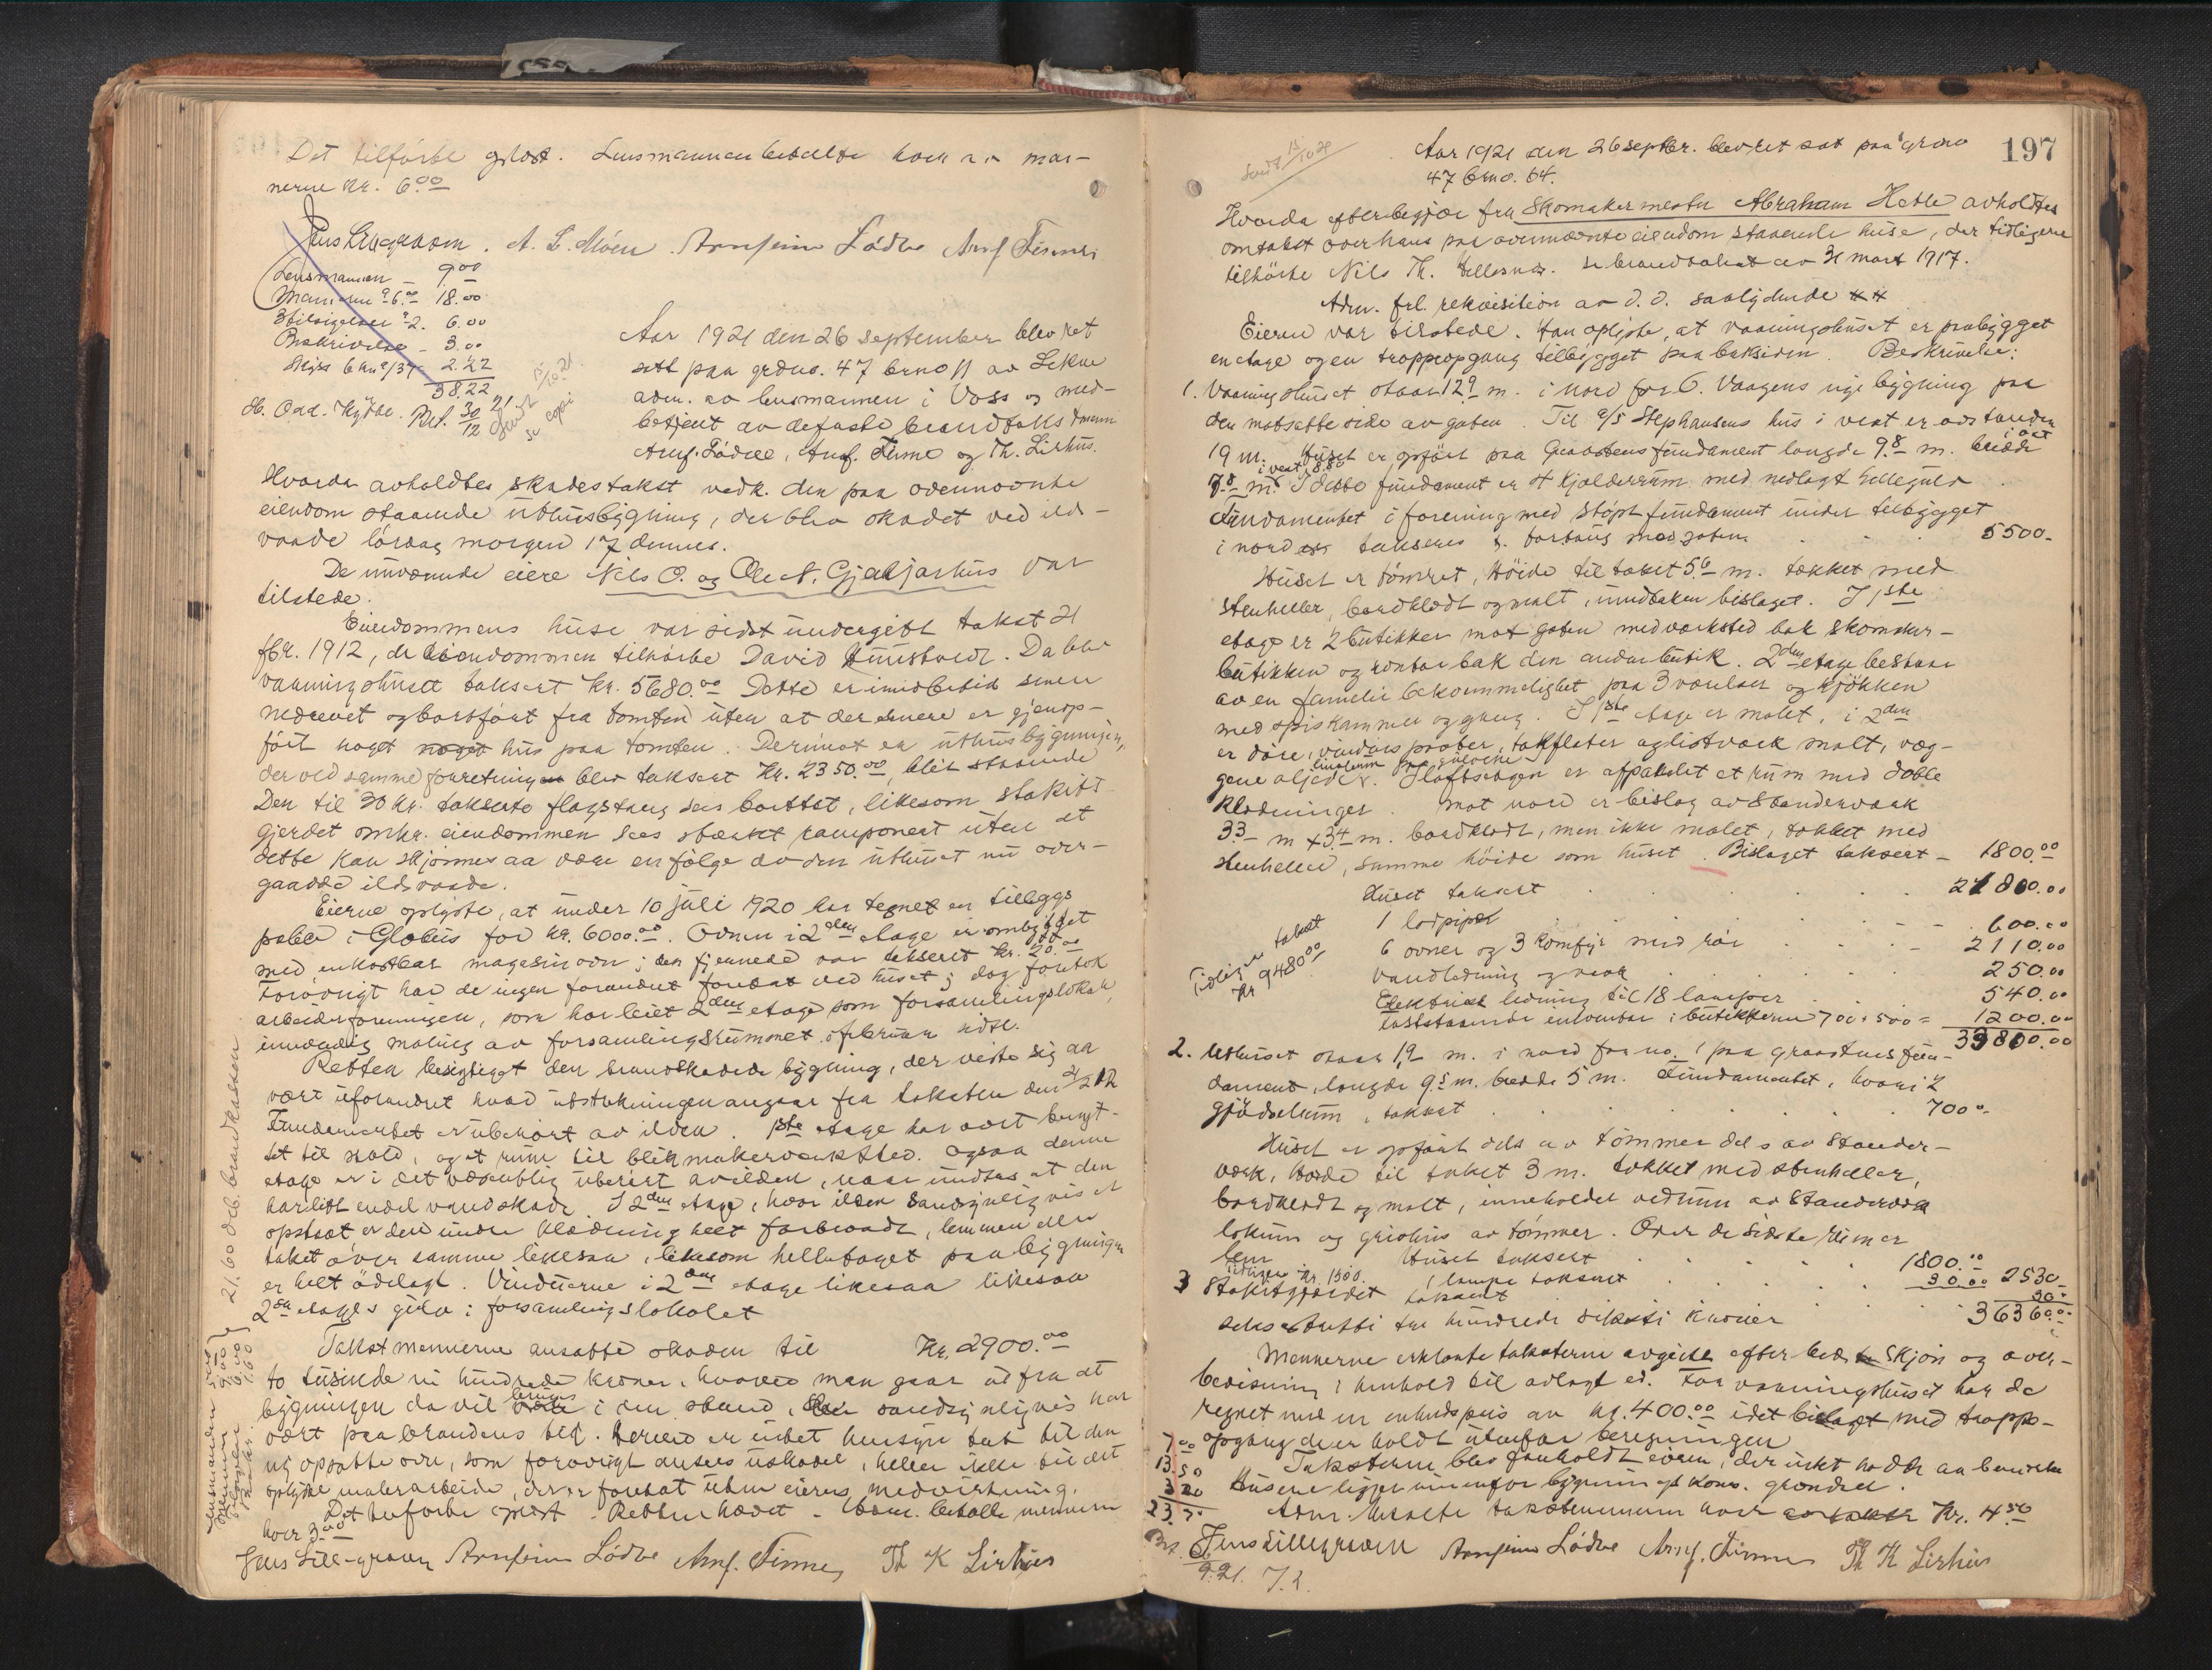 Det tilførte oplæst. Lensmannen betalte hver av mæn-
nerne kr. 6.00
Jens Lillegraven. A. L. Møen. Arnfinn Lødve Arnf. Finne
Lensmannen - 9.00
Mænnene á 6.00 18.00
3 tilsigelser á 2. 6.00
Beskrivelse - 3.00
Skyss 6 km á /37 2.22
38.22
Bet. 30/12 21
Aar 1921 den 26 september blev ret
satt paa grdno. 47 bruno 11 av Lekve
adm. av lensmannen i Voss og med-
betjent av de faste brandtakstmenn
Arnf. Lødve, Arnf. Finne og Th. Lirhus.
Hvorda avholdtes skadestakst vedk. den paa ovennævnte
eiendom staaende uthusbygning, der blev skadet ved ild-
vaade lørdag morgen 17 dennes.
De nuværende eiere Nils O. og Ole N. Gjeljarhus var
tilstede.
Eiendommens huse var sidst undergitt takst 21
fbr. 1912, da eiendommen tilhørte David. Da blev
vaaningshuset taksert kr. 5680.00 Dette er imidlertid senere
nedrevet og bortført fra tomten uten at der senere er gjenop-
ført noget hus paa tomten. Derimot er uthusbygningen,
der ved samme forretning blev taksert Kr. 2350.00, blit staaende
Den til 30 kr. takserte flagstang sees borttat, likesom stakitt-
gjerdet omkr. eiendommen sees stærkt ramponert uten at
dette kan skjønnes aa være en følge av den uthuset nu over-
gaadde ildsvaade.
Eierne oplyste, at under 10 juli 1920 har tegnet en tillægs
police i Globus for kr. 6000.00. Ovnen i 2den etage er ombyttet
med en kostbar magasinovn; den fjernede var taksert Kr. 20.00
Forøvrigt har de ingen forandret foretat ved huset; dog foretok
arbeiderforeningen, som har leiet 2den etage som forsamlingslokale,
indvendig maling av forsamlingsrummet i februar sidst.
Retten besigtiget den brandskadede bygning, der viste sig aa
vært uforandret hvad utstrækningen angaar fra taksten den 21/2 12
Fundamentet er uberørt av ilden. 1ste etage har vært benyt-
tet til stald, og et rum til blikmakerverksted. Ogsaa denne
etage er i det væsentlig uberørt av ilden, naar undtas at den
har litt endel vandskade. I 2den etage, hvor ilden sandsynligvis er
opstaat er den indre klædning helt forbrændt, lemmen eller
taket over samme likesaa, likesom helletaget paa bygningen
er helt ødelagt. Vinduerne i 2den etage likesaa likesaa
2den etages gulv i forsamlingslokalet
Takstmennerne ansatte skaden til Kr. 2900.00
to tusinde ni hundrede kroner, hvorved man gaar ut fra at
bygningen da vil bringes i den stand, den sandsynligvis har
vært paa brandens tid. Herved er intet hensyn tat til den
ny opsatte ovn, som forøvrigt ansees uskadet, heller ikke til det
oplyste malerarbeide, der er foretat uten eieres medvirkning.
Det tilførte oplæst. Retten hævet. Lensm. betalte mennene
hver 3.00
Jens Lillegraven Arnfinn Lødve Arnf. Finne Th K Lirhus
Lensmannen
Mennene 9.00
Tilsigelser 6.00
1.60
21.60 deb. brandkassen
197
Sendt 15/10 21
Aar 1921 den 26 septbr. blev ret sat paa grdno
47 brno. 64.
Hvorda efter begjær fra Skomakermester Abraham Hetle avholdtes
omtakst over hans paa ovennævnte eiendom staaende huse, der tidligere
tilhørte Nils Th. Hellesnes. Se brandtakst av 31 mart 1917.
Adm. frl. rekvisition av d. d. saalydende
Eieren var tilstede. Han oplyste, at vaaningshuset er paabygget
en etage og en trappeopgang tilbygget paa baksiden. Beskrivelse:
1. Vaaningshuset staar 12.9 m. i nord for O. Vaagens nye bygning paa
den motsatte side av gaten. Til a/s Stephansens hus i vest er avstanden
19 m. Huset er opført paa Graastensfundament længde 9.8 m. bredde i øst
7.8 m. i vest 8.8 I dette fundament er et kjælderrum med nedlagt hellegulv
Fundamentet i forening med støpt fundament under tilbygget
i nord takseres s. fortaug mod gaten 5500.-
Huset er tømret, høide til taket 5.6 m. tækket med
stenheller, bordklædt og malt, undtaken bislaget. I 1ste
etage er 2 butikker mot gaten med værksted bak skomaker-
butikken og kontor bak den anden butik. 2den etage bestaar
av en familiebekvemmelighet paa 3 værelser og kjøkken
med spiskammer og gang. I 1ste etage er malet, i 2den
er døre, vinduesposter, takflater og listværk malt, væg-
gene oljede. linoleum paa gulvene I loftsetagen er afpanelet et rum med doble
klædninger. Mot nord er bislag av Standerværk
3.3 m x 3.4 m. bordklædt, men ikke malet, tækket med
stenheller, samme høide som huset. Bislaget taksert - 1800.00
Huset taksert 27800.00
1 lodpipe 600.00
6 ovner og 3 komfyr med rør 2110.00
Vandledning og vask 250.00
Elektrisk ledning til 18 lamper 540.00
faststaaende inventar i butikkerne 700 + 500 = 1200.00
39800.00
Tidligere takst
Kr 9480.00
2. Uthuset staar 1.9 m. i nord for no. 1 paa graastensfun-
dament, længde 9.5 m. bredde 5 m. Fundamentet, hvori 2
gjødselrum, taksert 700.-
Huset er opført dels av tømmer dels av Stander-
værk, høide til taket 3 m. tækket med stenheller,
bordklædt og malt, inneholder vedrum av Standerværk
lokum og grisehus av tømmer. Over de sidste rum er
lem Huset taksert 1800.00
tidligere Kr. 1500. 1 lampe taksert 30.00 2530.-
3 Stakitgjærdet taksert 30.-
seks og tretti tre hundrede seksti kroner 36360.00
Mennerne erklærte taksterne avgitt efter beste skjøn og over-
bevisning i henhold til avlagt ed. For vaaningshuset har de
regnet med en enhetspris av kr. 400.00 idet bislaget med trappe-
opgang er holdt utenfor beregningen
Taksterne blev foreholdt eieren, der intet hadde aa bemerke
Husene ligger innenfor bygningsl. kons. grændse.
Adm. betalte takstmennene hver Kr. 4.50
7.00
13.50
3.00
23.50
Jens Lillegraven Arnfinn Lødve Arnf. Finne Th K Lirhus